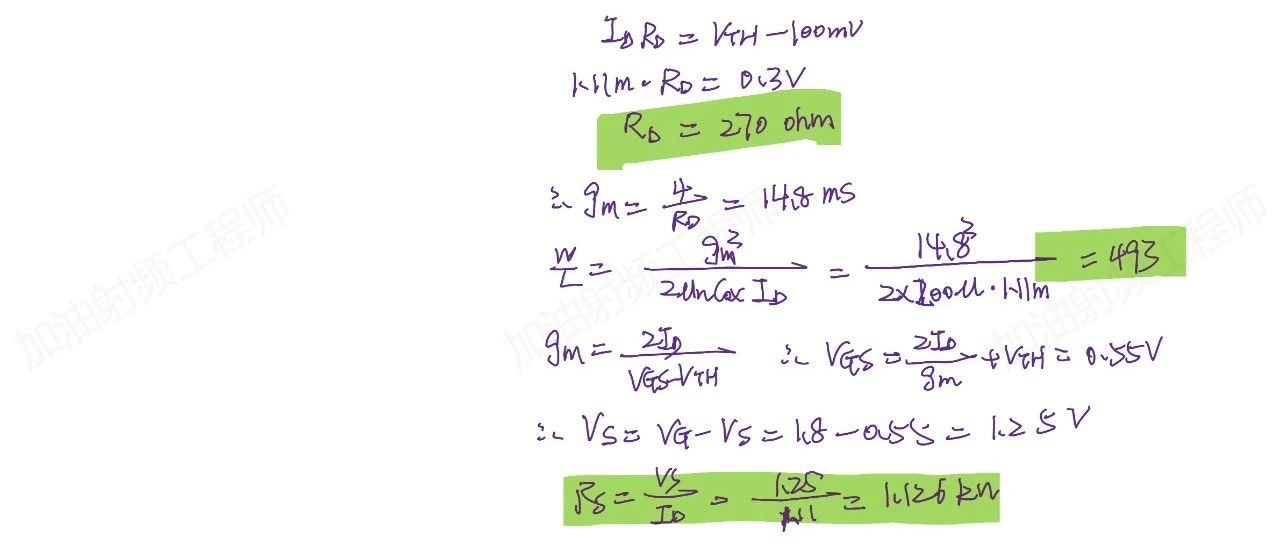 I_D R_D = V_TH - 100mV
1.11m · R_D = 0.3V
R_D = 270 ohm
∴ g_m = 4/R_D = 14.8 mS
W/L = g_m²/(2 μnCox I_D) = 14.8²/(2×200μ · 1.11m) = 493
g_m = 2I_D/(V_GS-V_TH) ∴ V_GS = 2I_D/g_m + V_TH = 0.55V
∴ V_S = V_G - V_S = 1.8 - 0.55 = 1.25V
R_S = V_S/I_D = 1.25/1.11 = 1.126 kΩ
加油射频工程师
加油射频工程师
加油射频工程师